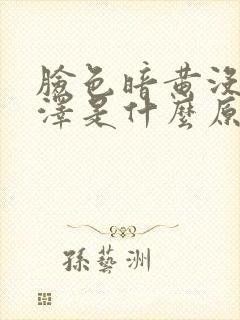 臉色暗黃沒
澤是什麼原
孫藝洲